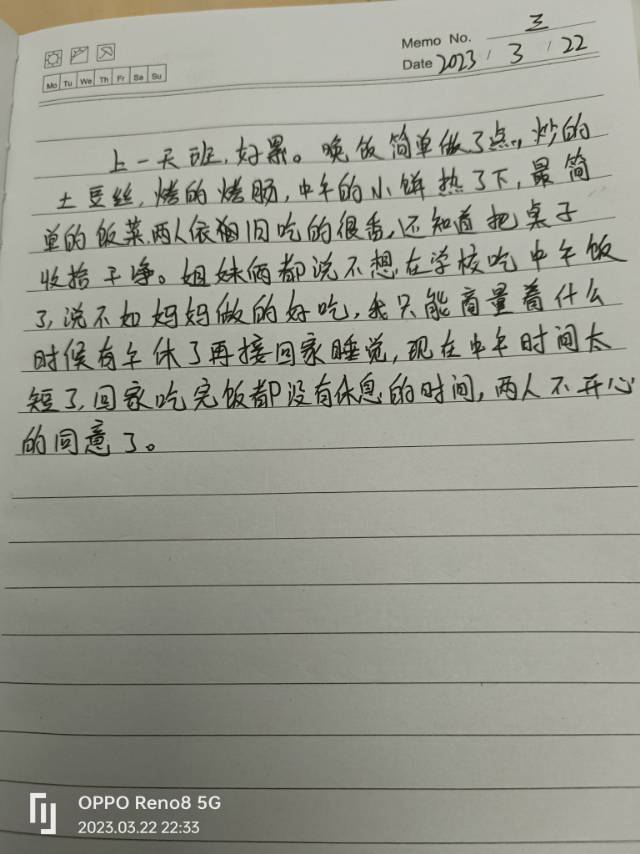 Memo No. 三
Mo Tu We Th Fr Sa Su
Date 2023 / 3 / 22
上一天班,好累。晚饭简单做了点,炒的
土豆丝,烤的烤肠,中午的小饼热了下,最简
单的饭菜,两人依旧吃的很香,还知道把桌子
收拾干净。姐妹俩都说不想在学校吃中午饭
了,说不如妈妈做的好吃,我只能商量着什么
时候有午休了再接回家睡觉,现在中午时间太
短了,回家吃完饭都没有休息的时间,两人不开心
的同意了。
OPPO Reno8 5G
2023.03.22 22:33